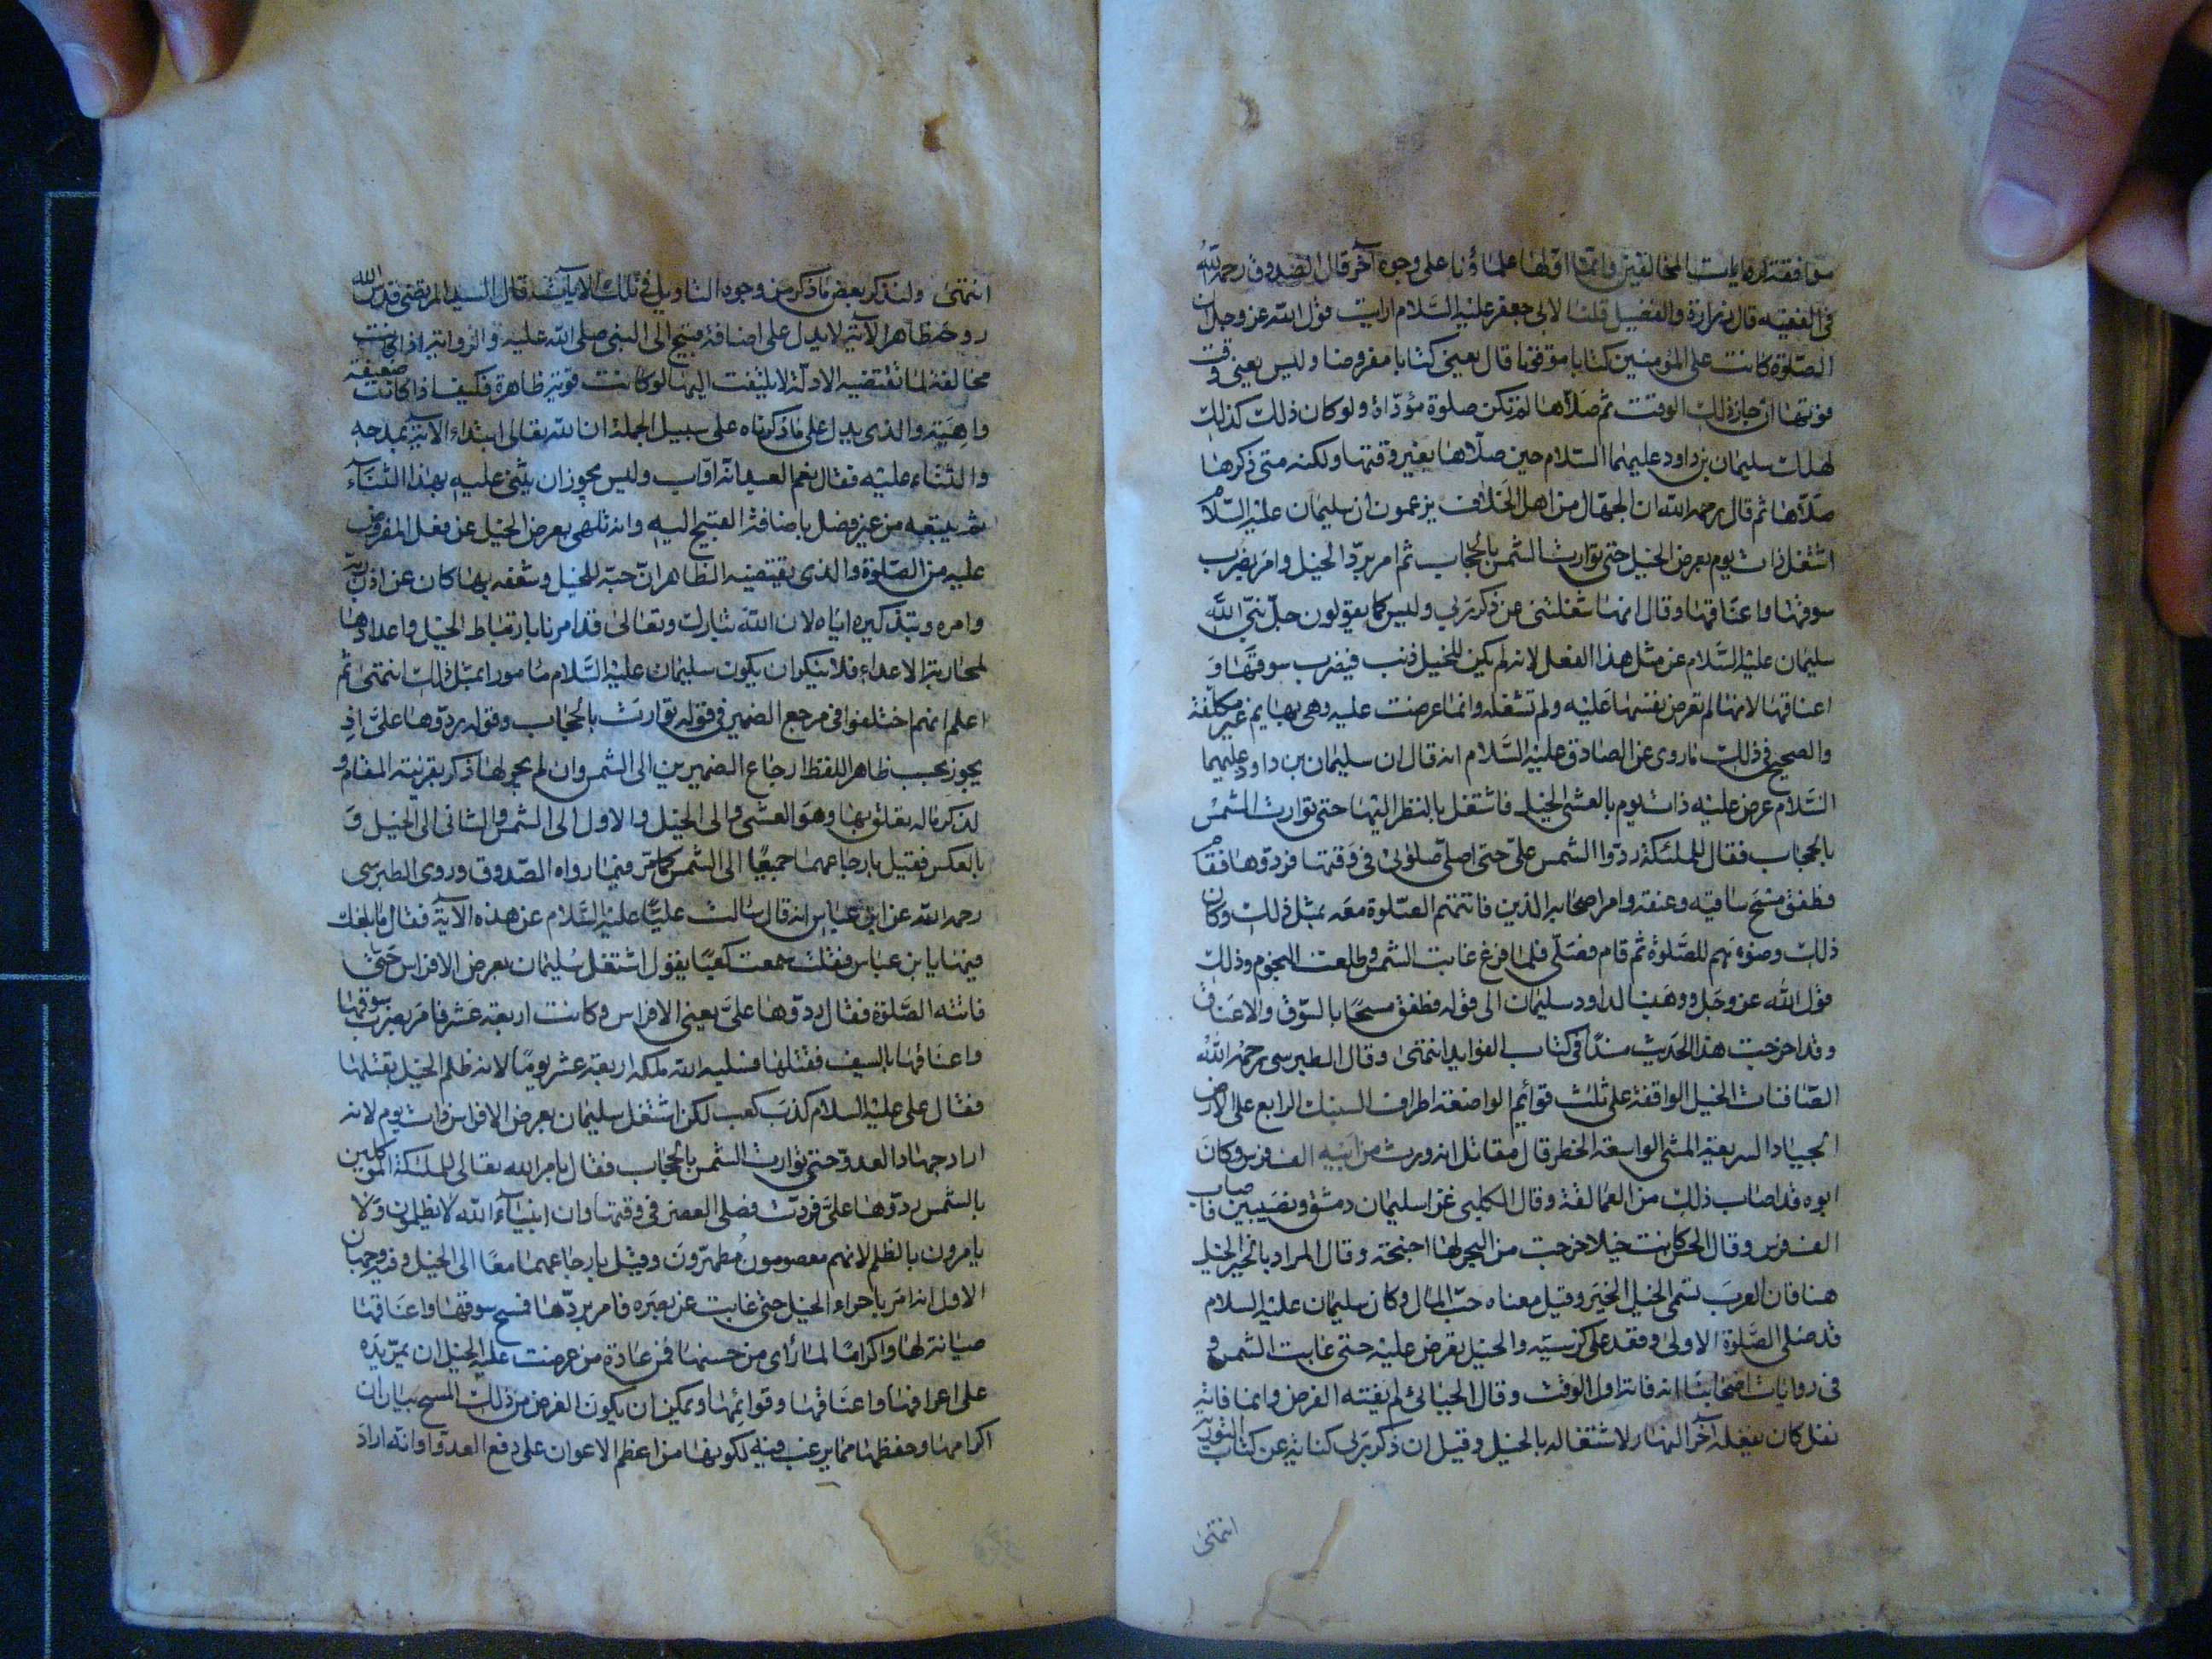 موافقة لروايات المخالفين وانما اولها علماؤنا على وجوه آخر قال الصدوق رحمه الله
فى الفقيه قال زرارة والفضيل قلنا لابى جعفر عليه السلام ارايت قول الله عز وجل ان
الصلوة كانت على المؤمنين كتابا موقوتا قال يعنى كتابا مفروضا وليس يعنى وقت
فوتها ان جاز ذلك الوقت ثم صلاها لم تكن صلوة مؤداة ولو كان ذلك كذلك
لهلك سليمان بن داود عليهما السلام حين صلاها بغير وقتها ولكنه متى ذكرها
صلاها ثم قال رحمه الله ان الجهال من اهل الخلاف يزعمون ان سليمان عليه السلام
اشتغل ذات يوم بعرض الخيل حتى توارت الشمس بالحجاب ثم امر برد الخيل وامر بضرب
سوقها واعناقها وقال انها شغلتنى عن ذكر ربى وليس كما يقولون جل نبى الله
سليمان عليه السلام عن مثل هذا الفعل لانه لم يكن للخيل ذنب فيضرب سوقها و
اعناقها لانها لم تعرض نفسها عليه ولم تشغله وانما عرضت عليه وهى بهايم غير مكلفة
والصحيح فى ذلك ما روى عن الصادق عليه السلام انه قال ان سليمان بن داود عليهما
السلام عرض عليه ذات يوم بالعشى الخيل فاشتغل بالنظر اليها حتى توارت الشمس
بالحجاب فقال للملئكة ردوا الشمس على حتى اصلى صلوتى فى وقتها فردوها فقام
فطفق مسح ساقيه وعنقه وامر اصحابه الذين فاتتهم الصلوة معه بمثل ذلك وكان
ذلك وضوءهم للصلوة ثم قام فصلى فلما فرغ غابت الشمس وطلعت النجوم وذلك
قول الله عز وجل ووهبنا لداود سليمان الى قوله فطفق مسحا بالسوق والاعناق
وقد اخرجت هذا الحديث مسندا فى كتاب الفوايد انتهى وقال الطبرسى رحمه الله
الصافنات الخيل الواقفة على ثلث قوائم الواضعة اطراف السنبك الرابع على الارض
الجياد السريعة المشى الواسعة الخطو قال مقاتل انه ورث من ابيه الف فرس وكان
ابوه قد اصاب ذلك من العمالقة وقال الكلبى غزا سليمان دمشق ونصيبين فاصاب
الف فرس وقال الحسن كانت خيلا خرجت من البحر لها اجنحة وقال المراد بالخير الخيل
هنا فان العرب تسمى الخيل الخير وقيل معناه حب المال وكان سليمان عليه السلام
قد صلى الصلوة الاولى وقعد على كرسيه والخيل تعرض عليه حتى غابت الشمس و
فى روايات اصحابنا انه فاته اول الوقت وقال الجبائى لم يفته الفرض وانما فاته
نفل كان يفعله آخر النهار لاشتغاله بالخيل وقيل ان ذكر ربى كناية عن كتاب التورية
انتهى
انتهى ولنذكر بعض ما ذكر من وجوه التاويل فى تلك الآيات قال السيد المرتضى قدس الله
روحه ظاهر الآية لا يدل على اضافة قبيح الى النبى صلى الله عليه والرواية اذا كانت
مخالفة لما تقتضيه الادلة لا يلتفت اليها لو كانت قوية ظاهرة فكيف اذا كانت ضعيفة
واهية والذى يدل على ما ذكرناه على سبيل الجملة ان الله تعالى ابتداء الآية بمدحه
والثناء عليه فقال نعم العبد انه اواب وليس يجوز ان يثنى عليه بهذا الثناء
ثم يتبعه من غير فصل باضافة القبيح اليه وانه تلهى بعرض الخيل عن فعل المفروض
عليه من الصلوة والذى يقتضيه الظاهر ان حبه للخيل وشغفه بها كان عن اذن ربه
وامره وبتذكيره اياه لان الله تبارك وتعالى قد امرنا بارتباط الخيل واعدادها
لمحاربة الاعداء فلا ينكر ان يكون سليمان عليه السلام مامورا بمثل ذلك انتهى ثم
اعلم انهم اختلفوا فى مرجع الضمير فى قوله توارت بالحجاب وقوله ردوها على اذ
يجوز بحسب ظاهر اللفظ ارجاع الضميرين الى الشمس وان لم يجر لها ذكر بقرينة المقام و
لذكر ما له تعلق بها وهو العشى والى الخيل والاول الى الشمس والثانى الى الخيل و
بالعكس فقيل بارجاعهما جميعا الى الشمس كما مر فيما رواه الصدوق وروى الطبرسى
رحمه الله عن ابن عباس انه قال سالت عليا عليه السلام عن هذه الآية فقال ما بلغك
فيها يا بن عباس فقلت سمعت كعبا يقول اشتغل سليمان بعرض الافراس حتى
فاتته الصلوة فقال ردوها على يعنى الافراس وكانت اربعة عشر فامر بضرب سوقها
واعناقها بالسيف فقتلها فسلبه الله ملكه اربعة عشر يوما لانه ظلم الخيل بقتلها
فقال على عليه السلام كذب كعب لكن اشتغل سليمان بعرض الافراس ذات يوم لانه
اراد جهاد العدو حتى توارت الشمس بالحجاب فقال بامر الله تعالى للملئكة الموكلين
بالشمس ردوها على فردت فصلى العصر فى وقتها وان انبياء الله لا يظلمون ولا
يامرون بالظلم لانهم معصومون مطهرون وقيل بارجاعهما معا الى الخيل وفيه وجهان
الاول انه امر باجراء الخيل حتى غابت عن بصره فامر بردها فمسح سوقها واعناقها
صيانة لها واكراما لما راى من حسنها فمن عادة من عرضت عليه الخيل ان يمر يده
على اعرافها واعناقها وقوائمها ويمكن ان يكون الغرض من ذلك المسح بيان ان
اكرامها وحفظها مما يرغب فيه لكونها من اعظم الاعوان على دفع العدو او انه اراد